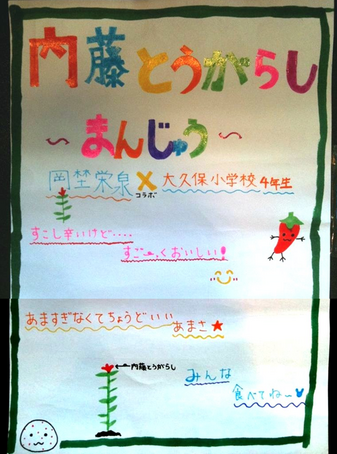 内藤とうがらし
～まんじゅう～
岡埜栄泉×大久保小学校4年生
コラボ
すこし辛いけど‥‥
すご～くおいしい!
あますぎなくてちょうどいい
あまさ★
←内藤とうがらし
みんな
食べてねー